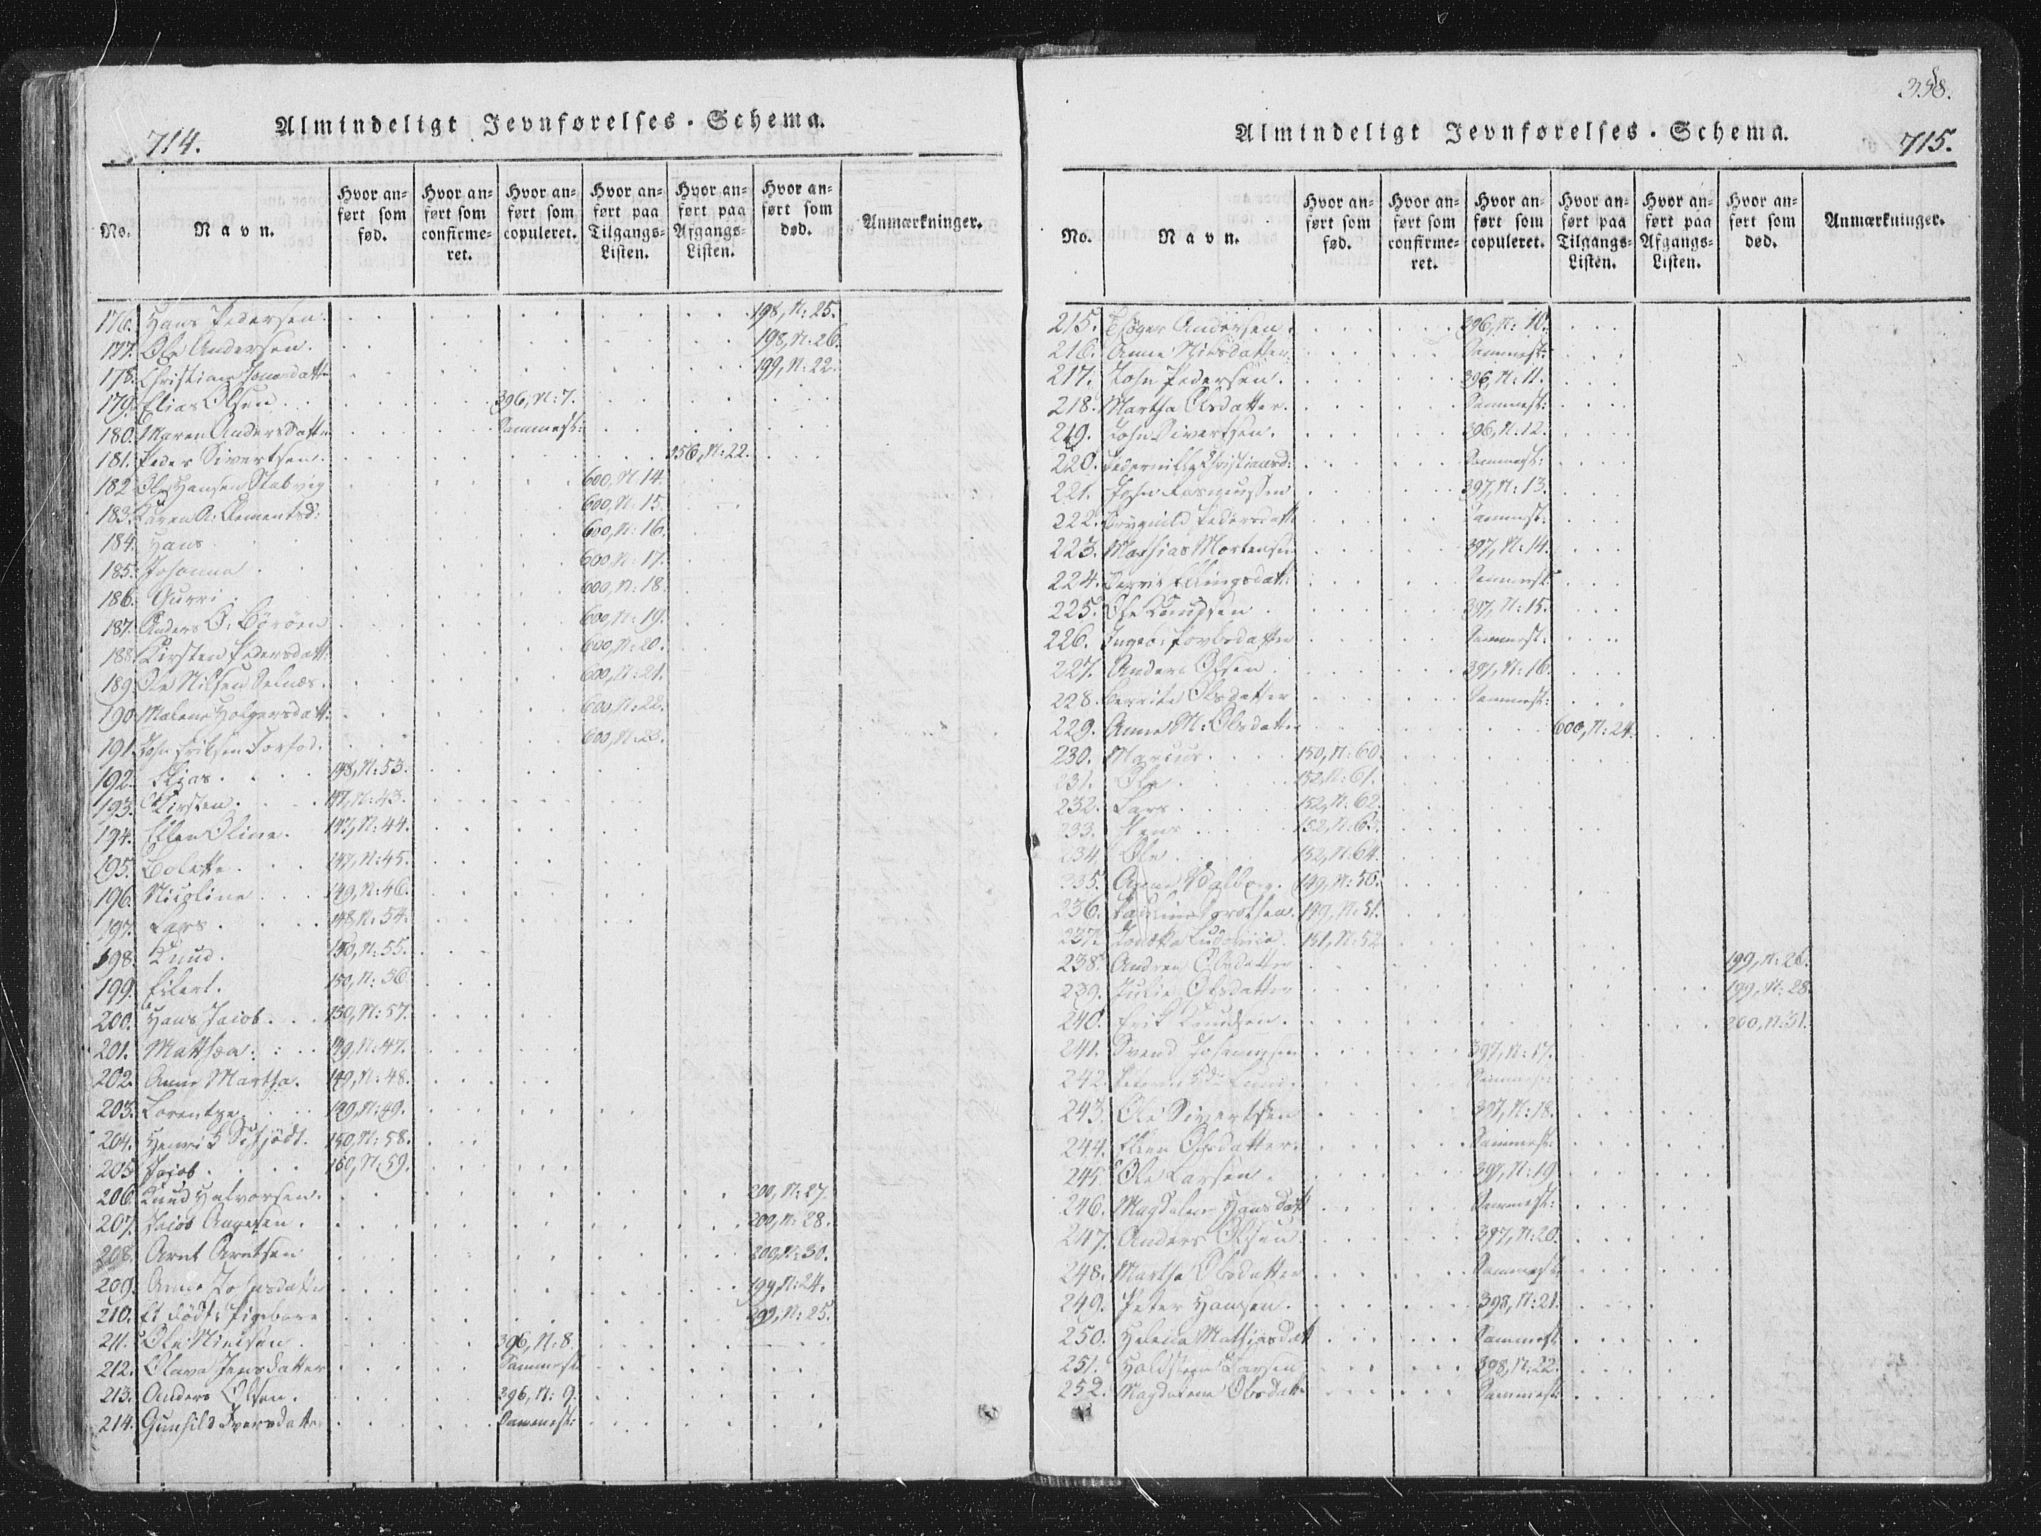 714.
Almindeligt Jevnførelses-Schema.
No.
Navn.
Hvor an=
ført som
fød.
Hvor an=
ført som
confirme=
ret.
Hvor an=
ført som
copuleret.
Hvor an=
ført paa
Tilgangs-
Listen.
Hvor an=
ført paa
Afgangs-
Listen.
Hvor an=
ført som
død.
Anmærkninger.
176. Hans Pedersen. 198, N: 25.
177. Ole Andersen. 198, N: 26.
178. Christiane 199, N: 22.
179. Elias Olsen 396, N: 7.
180. Maren Andersdatter Sammest:
181. Peder Sivertsen. 456, N: 22.
182 Ole Hansen 600, N: 14.
183. Karen A: Clementsd: 600, N: 15.
184. Hans 600, N: 16.
185. Johanna 600, N: 17.
186. Gurri 600, N: 18.
187. Anders O: 600, N: 19.
188 Kirsten Pedersdatt: 600, N: 20.
189. Ole Nilsen Selnæs. 600, N: 21.
190. Malene Holgersdatt: 600, N: 22.
191. John Eriksen 600, N: 23.
192. Elias 148, N: 53.
193. Kirsten. 147, N: 43.
194. Ellen Oline. 147, N: 44.
195. Bolette. 147, N: 45.
196. Nicoline 149, N: 46.
197. Lars 148, N: 54.
198. Knud. 150, N: 55.
199. Eilert. 150, N: 56.
200. Hans Jacob. 150, N: 57.
201. Matthea. 149, N: 47.
202. Anne Martha. 149, N: 48.
203. Lorentze. 149, N: 49.
204. Henrik 150, N: 58.
205. Jacob 150, N: 59.
206. Knud Halvorsen. 200, N: 27.
207. Jacob Aagesen. 200, N: 28.
208. Arnt Arntsen 200, N: 30.
209. Anne 199, N: 24.
210. Et dødf: Pigebarn 199, N: 25.
211. Ole Nielsen 396, N: 8.
212. Olava Jensdatter Sammest:
213. Anders Olsen. 396, N: 9.
214. Gunhild Iversdatter Sammest:
358.
Almindeligt Jevnførelses-Schema.
715.
No.
Navn.
Hvor an=
ført som
fød.
Hvor an=
ført som
confirme=
ret.
Hvor an=
ført som
copuleret.
Hvor an=
ført paa
Tilgangs-
Listen.
Hvor an=
ført paa
Afgangs-
Listen.
Hvor an=
ført som
død.
Anmærkninger.
215. Andersen. 396, N: 10.
216. Anne Nilsdatter Sammest:
217. John Pedersen. 396, N: 11.
218. Martha Olsdatter. Sammest:
219. John Sivertsen. 396, N: 12.
220. Pedernille Christiansd: Sammest:
221. John Rasmussen 397, N: 13.
222. Brynild Pedersdatt: Sammest:
223. Mathias Mortensen 397, N: 14.
224. Berrit Ellingsdat: Sammest:
225. Ole Knudsen 397, N: 15.
226. Ingeb: Povelsdatter Sammest:
227. Anders Olsen 397, N: 16.
228. Berrite Olsdatter Sammest:
229. Anne M: Olsdatter 600, N: 24.
230. Marcus 150, N: 60.
231. Ole 152, N: 61.
232. Lars 152, N: 62.
233. Jens 152, N: 63.
234. Ole 152, N: 64.
235. Anne 149, N: 50.
236. 149, N: 51.
237. 151, N: 52
238. Andrea Olsdatter 199, N: 26.
239. Julie Olsdatter 199, N: 28.
240. Erik Knudsen. 200, N: 31.
241. Svend Johannesen 397, N: 17.
242. Sammest:
243. Ole Sivertsen 397, N: 18.
244. Ellen Olsdatter. Sammest:
245. Ole Larsen 397, N: 19
246. Magdalene Hansdatt Sammest:
247. Anders Olsen 397, N: 20.
248. Martha Olsdatter Sammest:
249. Peter Hansen. 398, N: 21.
250. Helene Mathiasdatt Sammest
251. 398, N: 22.
252. Magdalene Olsdatt. Sammest: